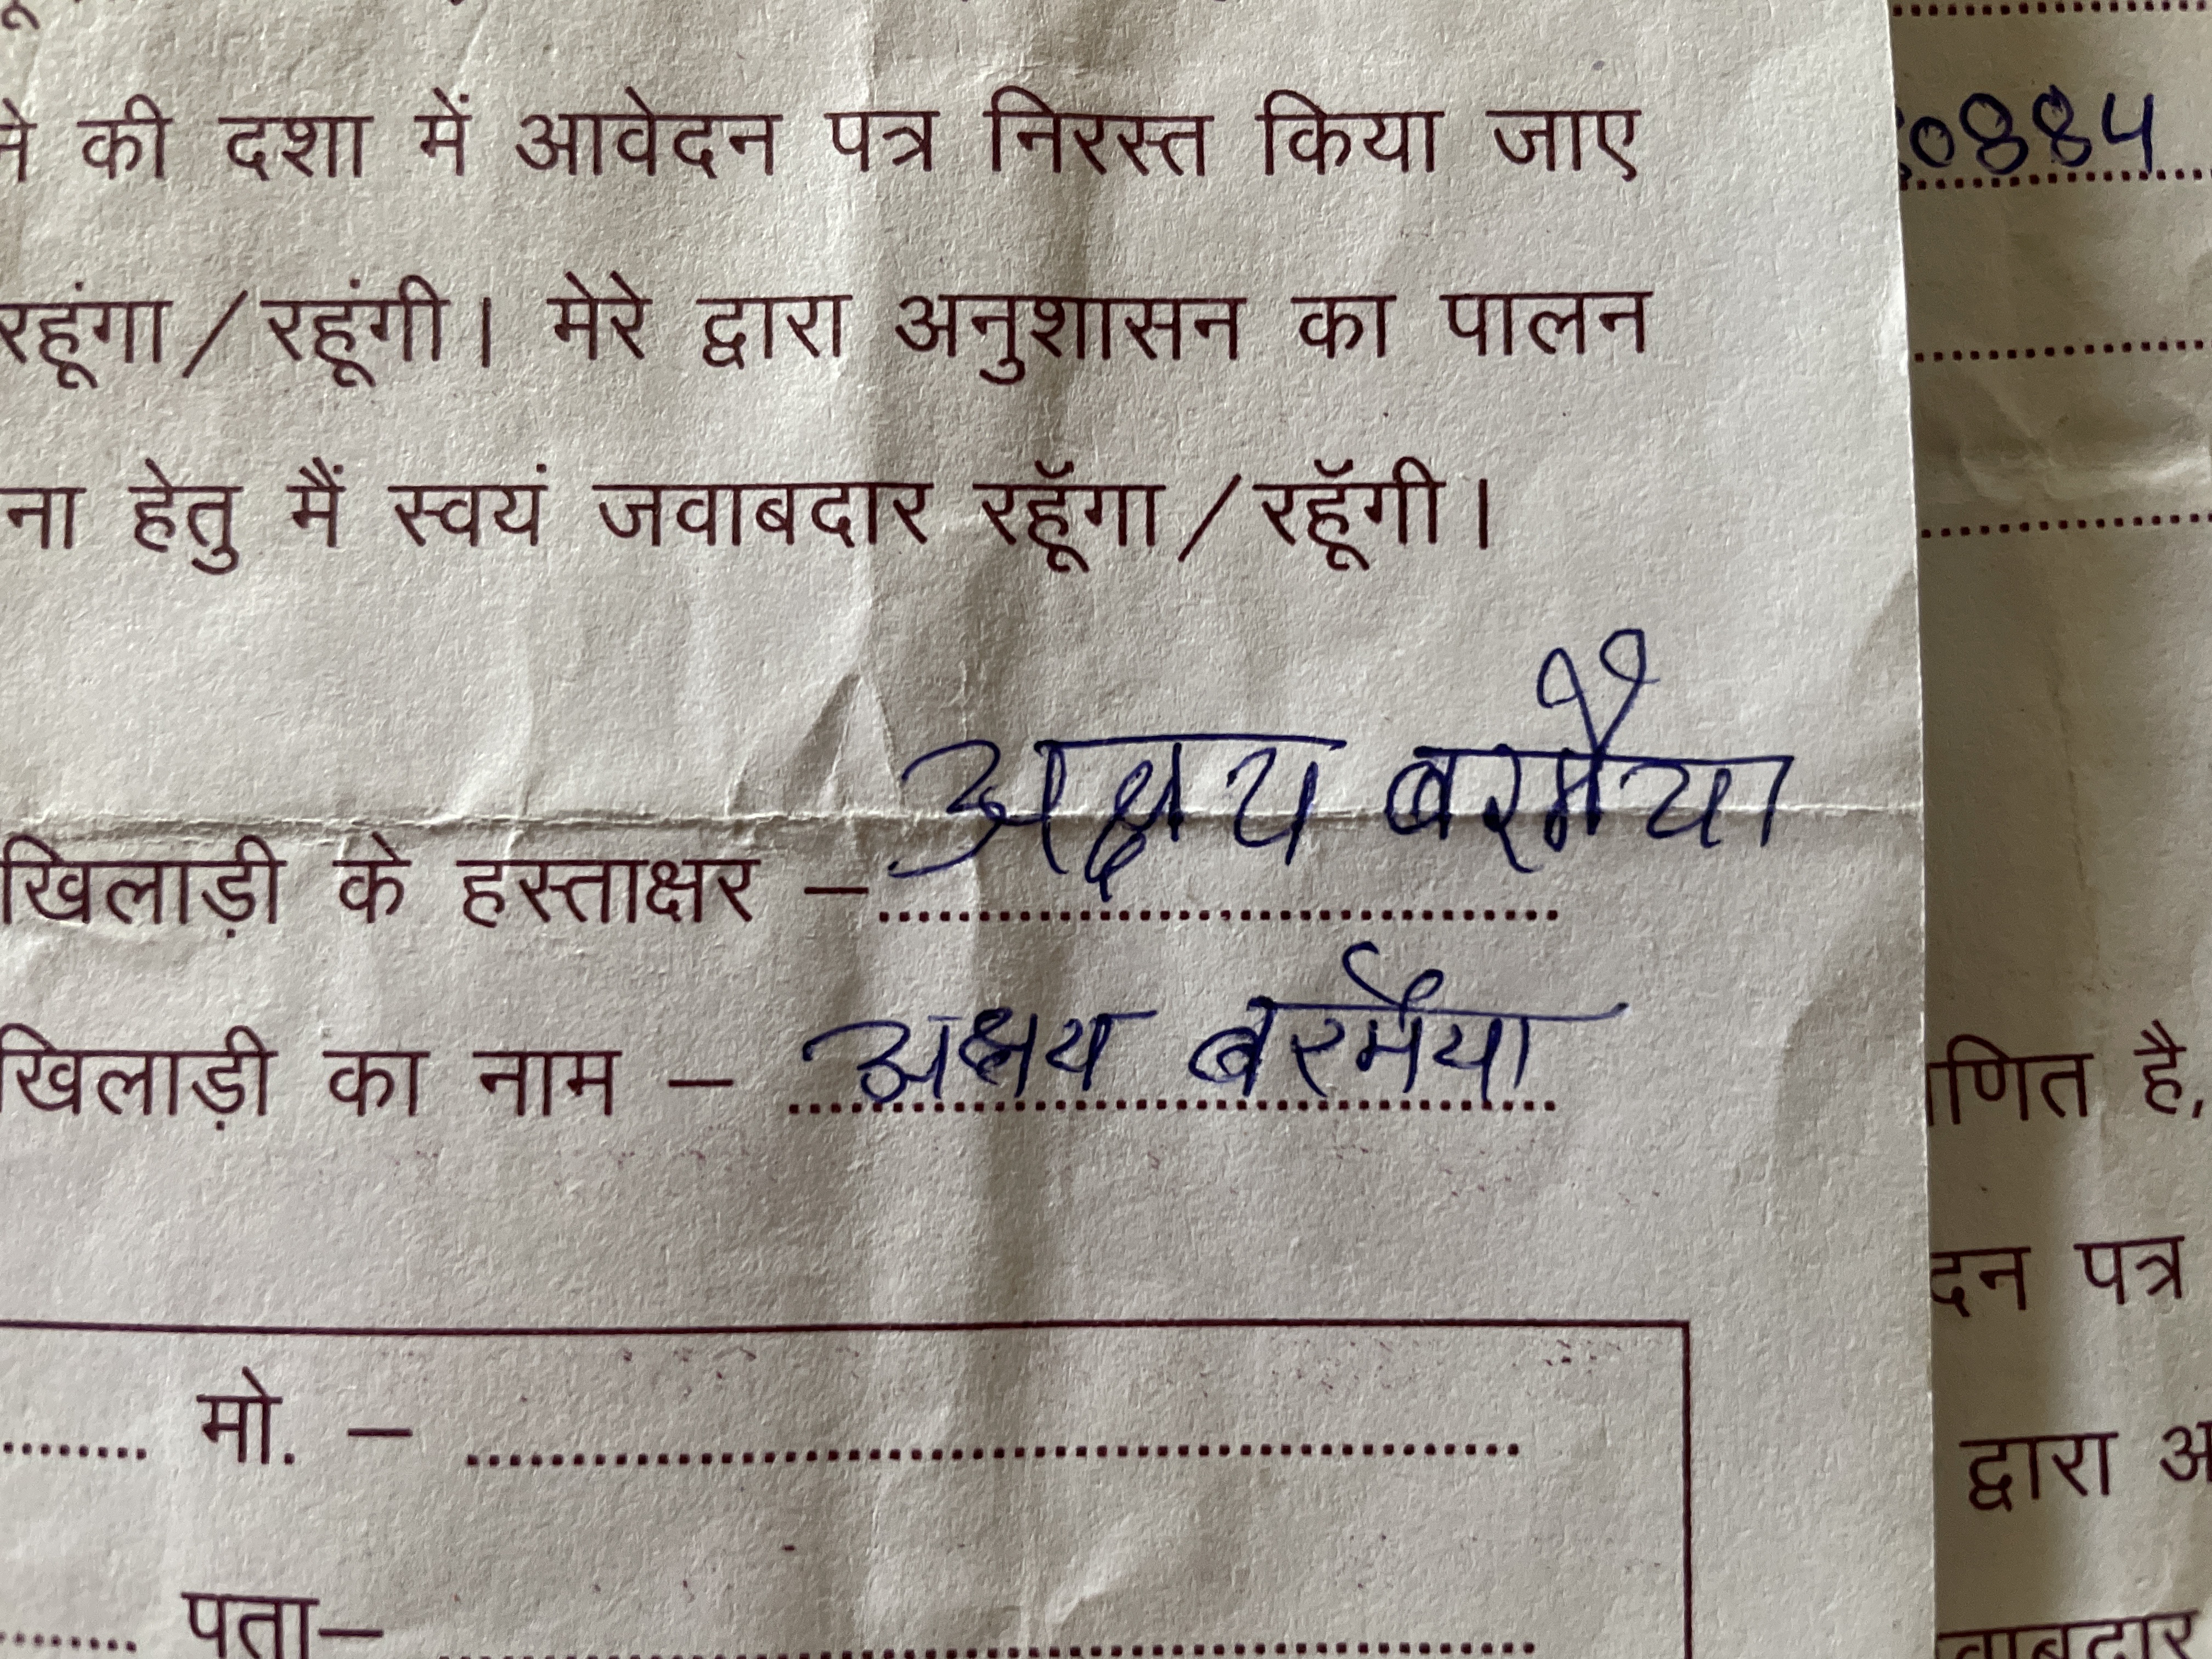 ने की दशा में आवेदन पत्र निरस्त किया जाए
रहूंगा/रहूंगी। मेरे द्वारा अनुशासन का पालन
ना हेतु मैं स्वयं जवाबदार रहूॅगा/रहूॅगी।
खिलाड़ी के हस्ताक्षर – अक्षय बरमैया
खिलाड़ी का नाम – अक्षय बरमैया
मो. –
पता–
0884
णित है,
दन पत्र
द्वारा अ
वाबदार